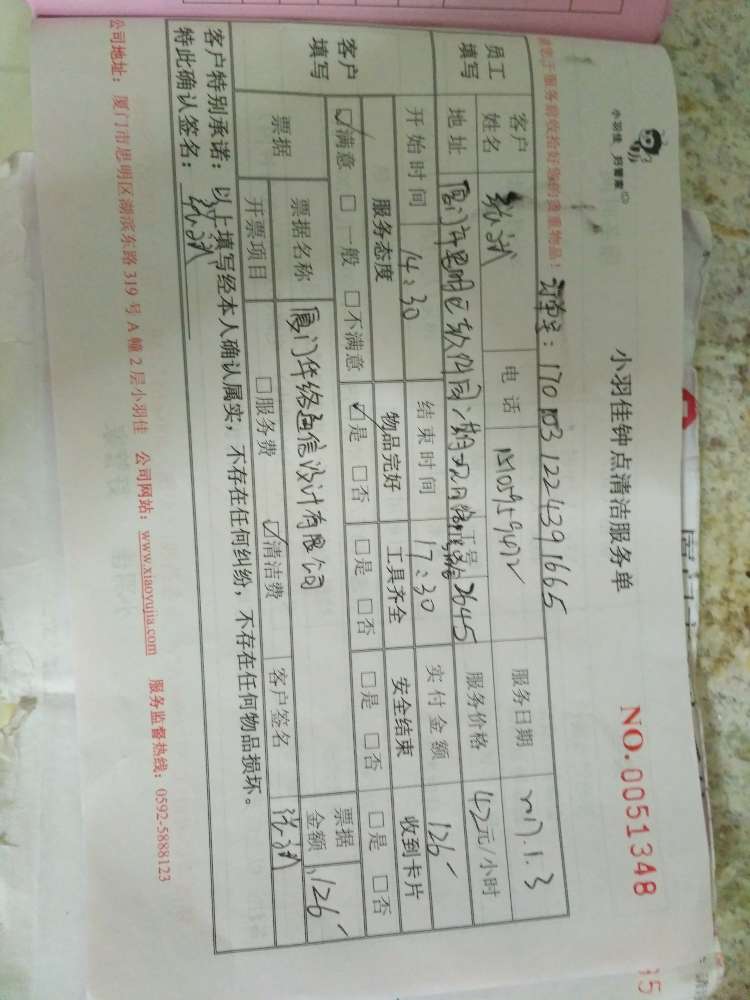 小羽佳 好管家
小羽佳钟点清洁服务单
NO.0051348
请您于服务前收拾好您的贵重物品!
订单号: 170103122439 1665
员工填写
客户姓名
电话
服务日期
2017.1.3
地址
厦门市思明区软件园二期观日路
工号
2645
服务价格
42元/小时
开始时间
14:30
结束时间
17:30
实付金额
126
客户填写
服务态度
物品完好
工具齐全
安全结束
收到卡片
☑满意 □一般 □不满意
☑是 □否
□是 □否
□是 □否
□是 □否
票据
票据名称
厦门华络通信设计有限公司
票据金额
126
开票项目
□服务费 ☑清洁费
客户签名
客户特别承诺: 以上填写经本人确认属实, 不存在任何纠纷, 不存在任何物品损坏。
特此确认签名:
公司地址: 厦门市思明区湖滨东路 319 号 A 幢 2 层小羽佳 公司网站: www.xiaoyujia.com 服务监督热线: 0592-5888123